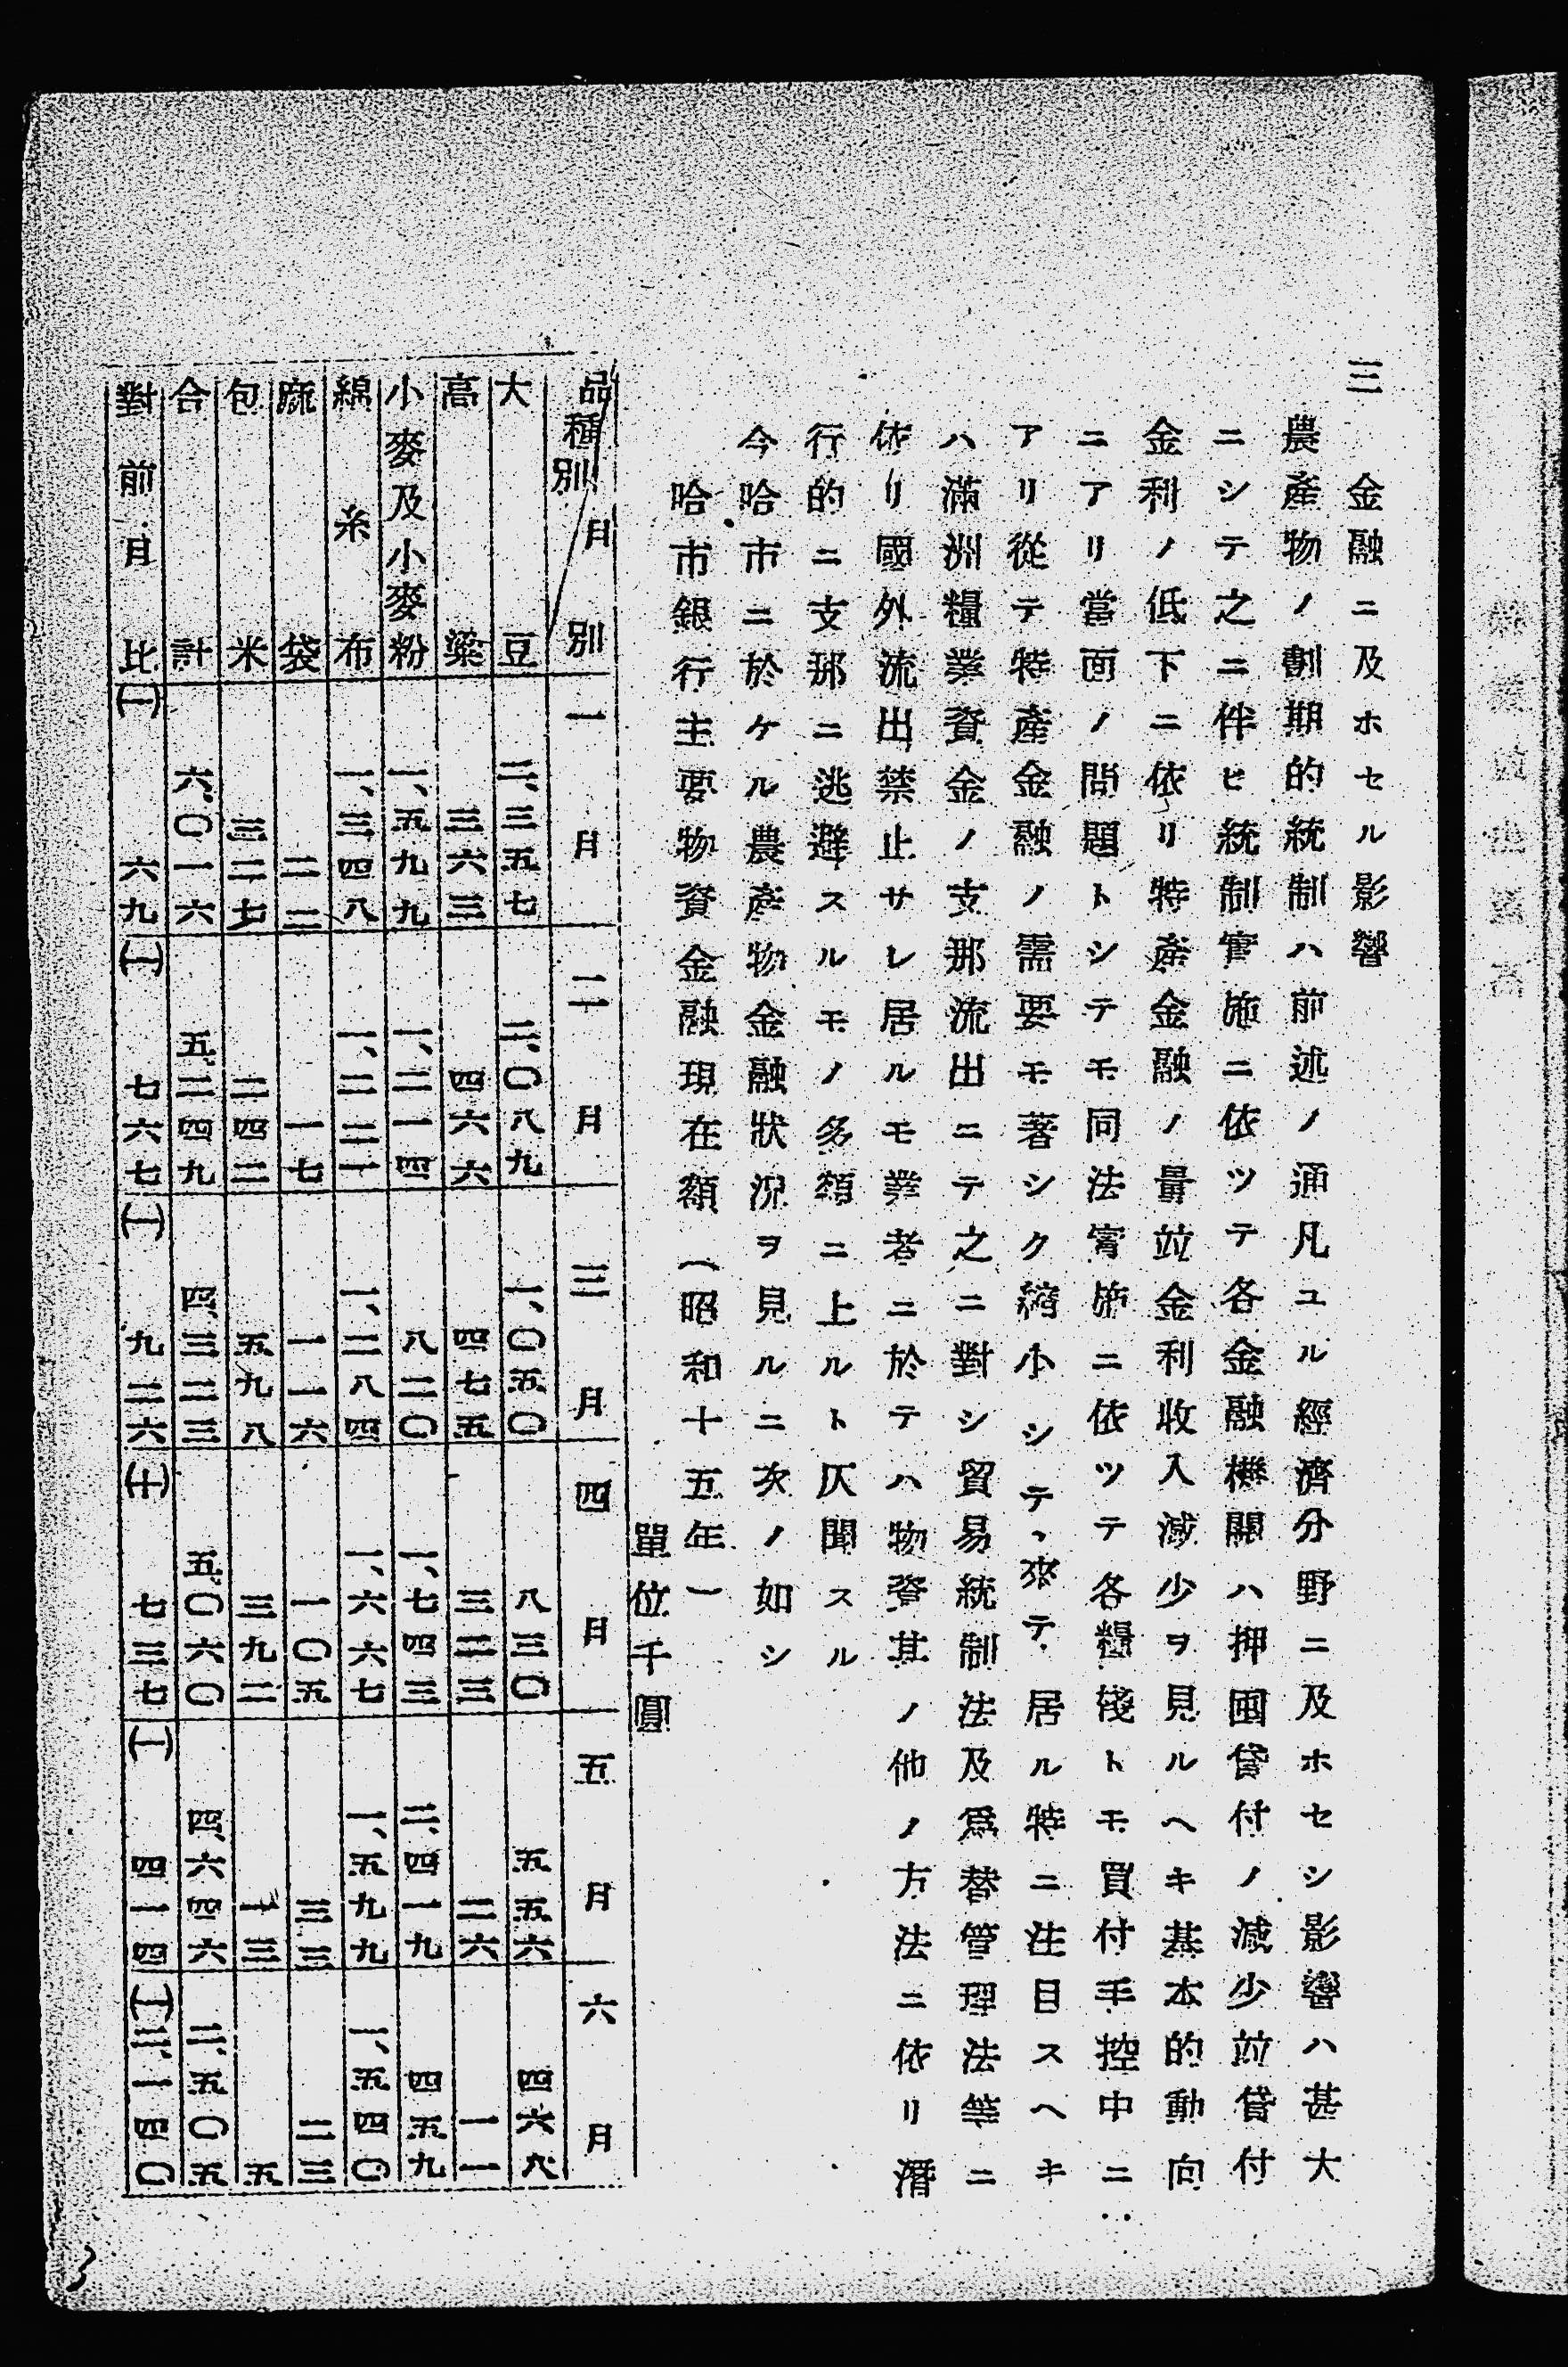 三
金融ニ及ホセル影響
農產物ノ劃期的統制ハ前述ノ通凡ユル經濟分野ニ及ホセシ影響ハ甚大
ニシテ之ニ伴ヒ統制實施ニ依ツテ各金融機關ハ押圖貸付ノ減少竝貸付
金利ノ低下ニ依リ特產金融ノ量竝金利收入減少ヲ見ルヘキ基本的動向
ニアリ當面ノ問題トシテモ同法實施ニ依ツテ各糧棧トモ買付手控中ニ
アリ從テ特產金融ノ需要モ著シク縮小シテ、來テ居ル特ニ注目スヘキ
ハ滿洲糧業資金ノ支那流出ニテ之ニ對シ貿易統制法及爲替管理法等ニ
依リ國外流出禁止サレ居ルモ業者ニ於テハ物資其ノ他ノ方法ニ依リ潛
行的ニ支那ニ逃避スルモノ多額ニ上ルト仄聞スル
今哈市ニ於ケル農產物金融狀況ヲ見ルニ次ノ如シ
哈市銀行主要物資金融現在額(昭和十五年一
單位千圓
品種別 月別 一月 二月 三月 四月 五月 六月
大豆 二、三五七 二、〇八九 一、〇五〇 八三〇 五五六 四六八
高粱 三六三 四六六 四七五 三二三 二六 一一
小麥及小麥粉 一、五九九 一、二一四 八二〇 一、七四三 二、四一九 四五九
綿糸布 一、三四八 一、二二一 一、二八四 一、六六七 一、五九九 一、五四〇
麻袋 二二 一七 一一六 一〇五 三三 二三
包米 三二七 二四二 五九八 三九二 一三 五
合計 六、〇一六 五、二四九 四、三二三 五、〇六〇 四、六四六 二、五〇五
對前月比 (一) 六九 (一) 七六七 (一) 九二六 (十) 七三七 (一) 四一四 (一) 三、一四〇
3